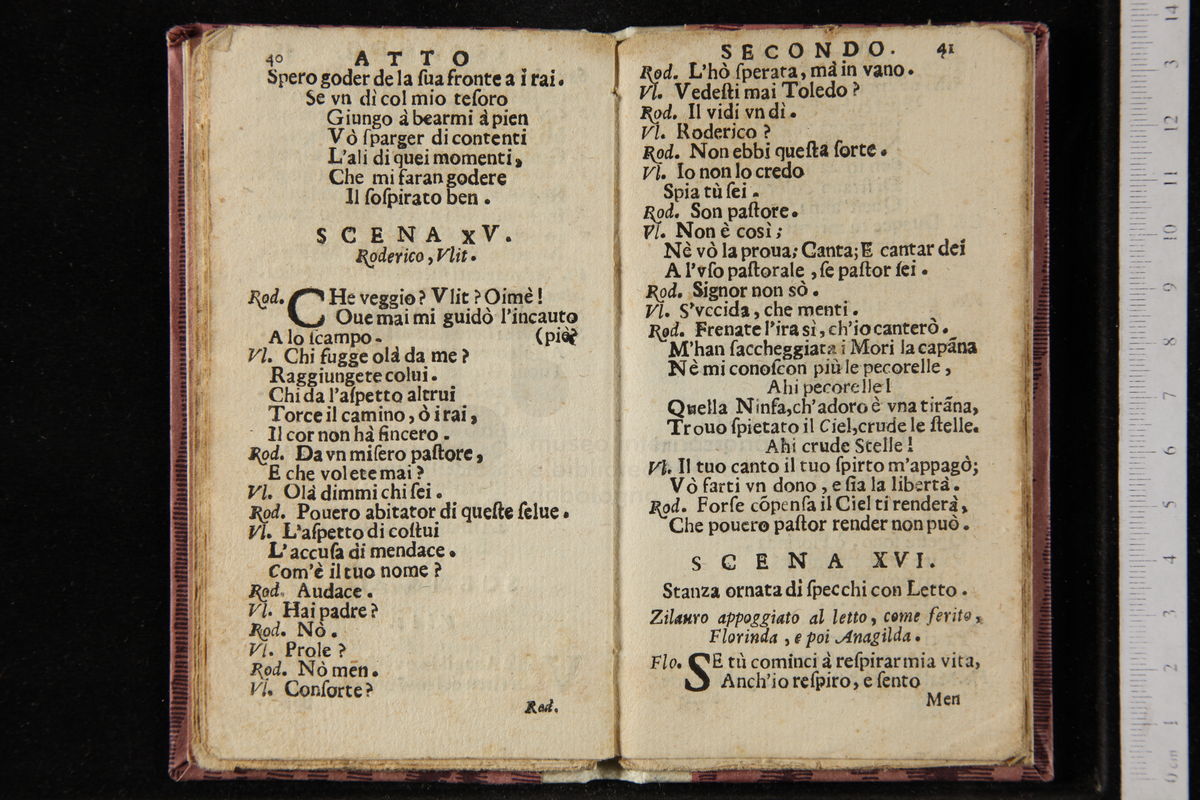 40 ATTO
Spero goder de la ſua fronte a i rai.
Se vn dì col mio teſoro
Giungo à bearmi à pien
Vò ſparger di contenti
L'ali di quei momenti,
Che mi faran godere
Il ſoſpirato ben.
SCENA XV.
Roderico, Vlit.
Rod. CHe veggio? Vlit? Oimè!
Oue mai mi guidò l'incauto
A lo ſcampo. (piè?
Vl. Chi fugge olà da me?
Raggiungete colui.
Chi da l'aſpetto altrui
Torce il camino, ò i rai,
Il cor non hà ſincero.
Rod. Da vn miſero paſtore,
E che volete mai?
Vl. Olà dimmi chi ſei.
Rod. Pouero abitator di queſte ſelue.
Vl. L'aſpetto di coſtui
L'accuſa di mendace.
Com'è il tuo nome?
Rod. Audace.
Vl. Hai padre?
Rod. Nò.
Vl. Prole?
Rod. Nò men.
Vl. Conſorte?
Rod.
SECONDO. 41
Rod. L'hò ſperata, mà in vano.
Vl. Vedeſti mai Toledo?
Rod. Il vidi vn dì.
Vl. Roderico?
Rod. Non ebbi queſta ſorte.
Vl. Io non lo credo
Spia tù ſei.
Rod. Son paſtore.
Vl. Non è così;
Nè vò la proua; Canta; E cantar dei
A l'vſo paſtorale, ſe paſtor ſei.
Rod. Signor non sò.
Vl. S'vccida, che menti.
Rod. Frenate l'ira sì, ch'io canterò.
M'han ſaccheggiata i Mori la capãna
Nè mi conoſcon più le pecorelle,
Ahi pecorelle!
Quella Ninfa, ch'adoro è vna tirãna,
Trouo ſpietato il Ciel, crude le ſtelle.
Ahi crude Stelle!
Vl. Il tuo canto il tuo ſpirto m'appagò;
Vò farti vn dono, e ſia la libertà.
Rod. Forſe cõpenſa il Ciel ti renderà,
Che pouero paſtor render non può.
SCENA XVI.
Stanza ornata di ſpecchi con Letto.
Zilauro appoggiato al letto, come ferito,
Florinda, e poi Anagilda.
Flo. SE tù cominci à reſpirar mia vita,
Anch'io reſpiro, e ſento
Men